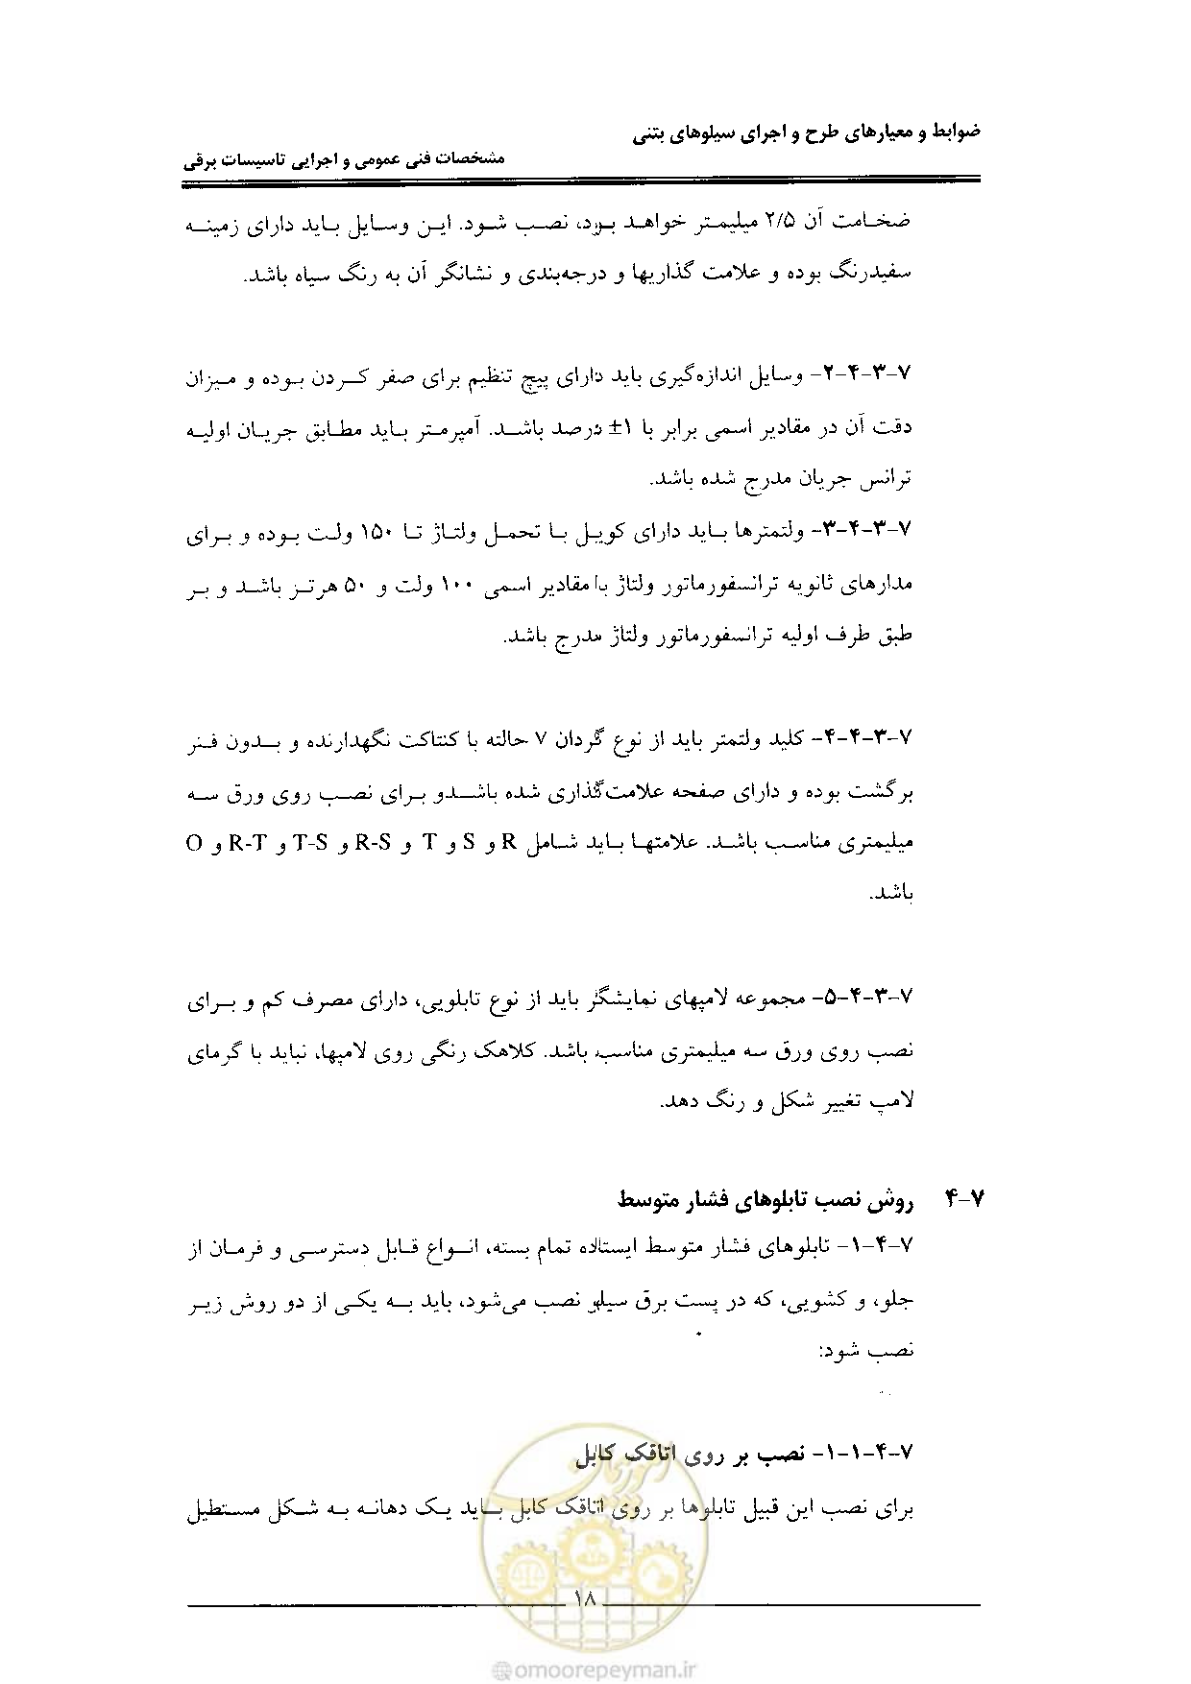 ضوابط و معیارهای طرح و اجرای سیلوهای بتنی
مشخصات فنی عمومی و اجرایی تاسیسات برقی
ضخامت آن ۲/۵ میلیمتر خواهد بود، نصب شود. این وسایل باید دارای زمینه
سفیدرنگ بوده و علامت گذاریها و درجه‌بندی و نشانگر آن به رنگ سیاه باشد.
۷-۳-۴-۲- وسایل اندازه‌گیری باید دارای پیچ تنظیم برای صفر کردن بوده و میزان
دقت آن در مقادیر اسمی برابر با ۱± درصد باشد. آمپرمتر باید مطابق جریان اولیه
ترانس جریان مدرج شده باشد.
۷-۳-۴-۳- ولتمترها باید دارای کویل با تحمل ولتاژ تا ۱۵۰ ولت بوده و برای
مدارهای ثانویه ترانسفورماتور ولتاژ با مقادیر اسمی ۱۰۰ ولت و ۵۰ هرتز باشد و بر
طبق طرف اولیه ترانسفورماتور ولتاژ مدرج باشد.
۷-۳-۴-۴- کلید ولتمتر باید از نوع گردان ۷ حالته با کنتاکت نگهدارنده و بدون فنر
برگشت بوده و دارای صفحه علامت‌گذاری شده باشدو برای نصب روی ورق سه
میلیمتری مناسب باشد. علامتها باید شامل R و S و T و R-S و T-S و R-T و O
باشد.
۷-۳-۴-۵- مجموعه لامپهای نمایشگر باید از نوع تابلویی، دارای مصرف کم و برای
نصب روی ورق سه میلیمتری مناسب باشد. کلاهک رنگی روی لامپها، نباید با گرمای
لامپ تغییر شکل و رنگ دهد.
۷-۴ روش نصب تابلوهای فشار متوسط
۷-۴-۱- تابلوهای فشار متوسط ایستاده تمام بسته، انواع قابل دسترسی و فرمان از
جلو، و کشویی، که در پست برق سیلو نصب می‌شود، باید به یکی از دو روش زیر
نصب شود:
۷-۴-۱-۱- نصب بر روی اتاقک کابل
برای نصب این قبیل تابلوها بر روی اتاقک کابل باید یک دهانه به شکل مستطیل
۱۸
@omoorepeyman.ir